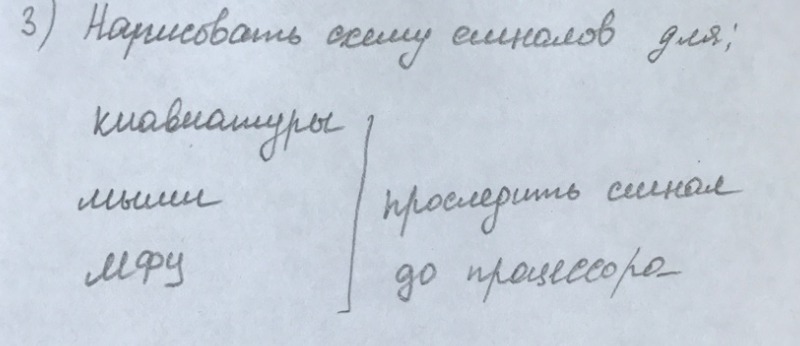 3) Нарисовать схему сигналов для:
клавиатуры
мыши
МФУ
проследить сигнал
до процессора